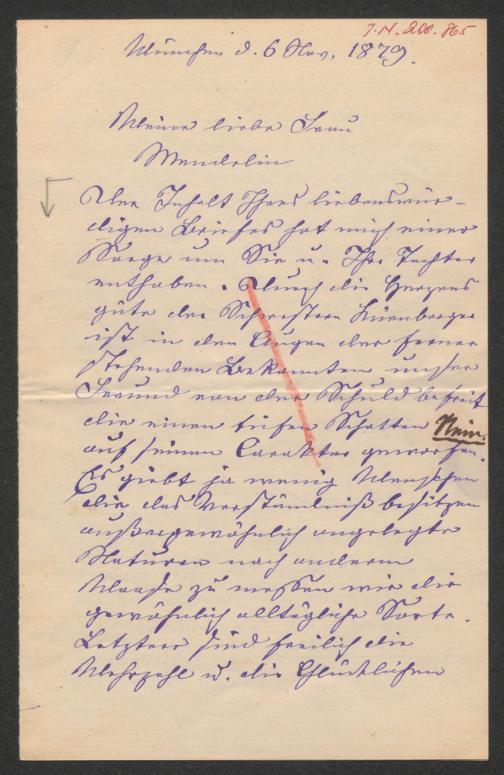 J.N. 200.865
München d. 6 Nov. 1879.
Meine liebe Frau
Wendelin
Der Inhalt Ihres liebenswür-
digen Briefes hat mich einer
Sorge um Sie u. Ihre Tochter
enthoben. Durch die Herzens
güte der Schwestern Kürnberger
ist in den Augen der ferner
stehenden Bekannten unser
Freund von der Schuld befreit
die einen tiefen Schatten
Nein.
auf seinen Carakter geworfen.
Es giebt ja wenig Menschen
die das Verständniß besitzen
außergewöhnlich angelegte
Naturen nach anderem
Maaße zu messen wie die
gewöhnlich alltägliche Sorte.
Letztere sind freilich die
Mehrzahl u. die Glücklichen